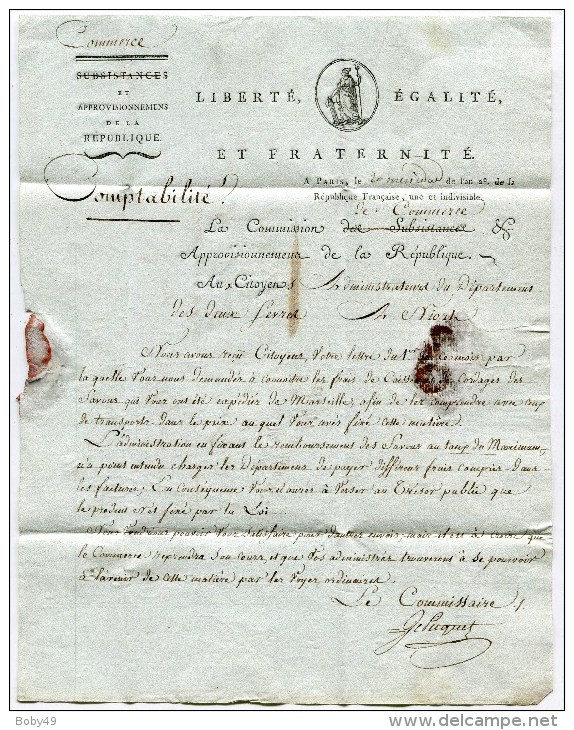 Commerce
SUBSISTANCES
ET
APPROVISIONNEMENS
DE LA
RÉPUBLIQUE.
LIBERTÉ, ÉGALITÉ,
ET FRATERNITÉ.
Comptabilité
A PARIS, le de l'an de la
République Française, une et indivisible.
de Commerce
La Commission des Subsistances &
Approvisionnemens de la République.
Aux Citoyens Administrateurs du Département
des deux Sevres A Niort
Nous avons reçu Citoyens, Votre lettre du 1er de ce mois par
la quelle Vous nous demandés à connoitre les frais de Caisses et Cordages des
Savons qui Vous ont été expédiés de Marseille, afin de les comprendre avec ceux
de transports dans le prix au quel Vous avés fixé cette matière.
L'administration en fixant le remboursement des Savons au taux du Maximum,
n'a point entendu charger les Départemens de payer différens frais compris dans
les factures; En conséquence Vous n'aurés à Verser au Trésor public que
le produit Net fixé par la Loi.
Nous Voudrions pouvoir Vous satisfaire pour d'autres envois, mais il est à croire que
le Commerce reprendra son cours et que Vos administrés trouveront à se pourvoir
à l'avenir de cette matière par les Voyes ordinaires.
Le Commissaire
Boby49
www.delcampe.net